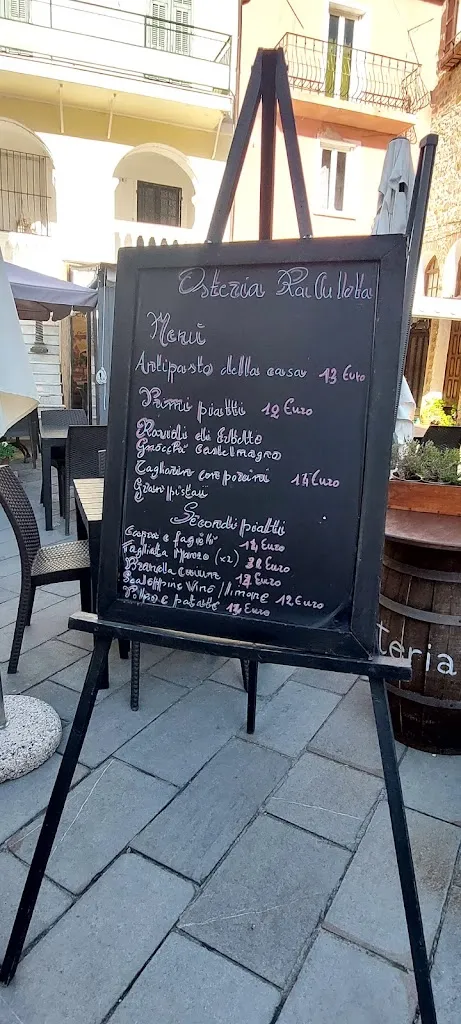 Osteria
Menù
Antipasto della casa 13 Euro
Primi piatti 12 Euro
Ravioli di
Gnocchi Castelmagno
Taglierini con porcini 14 Euro
Secondi piatti
Capra e fagioli 14 Euro
Tagliata Manzo (x2) Euro
Branzino Euro
Scaloppine Vino / limone 12 Euro
Polpo e patate 14 Euro
teria